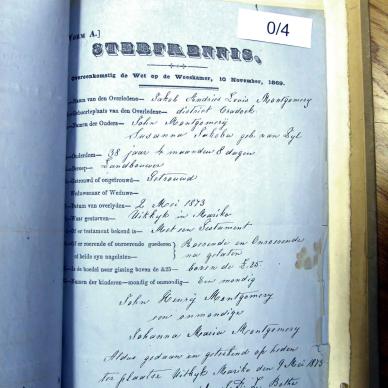 0/4
[FORM A.]
STERFKENNIS.
Overeenkomstig de Wet op de Weeskamer, 10 November, 1869.
Naam van den Overledene— Jakob Andries Louis Montgomery
Geboorteplaats van den Overledene— district Cradock
Namen der Ouders— John Montgomery
Susanna Jakoba geb. van Zyl
Ouderdom— 38 jaar 4 maanden 8 dagen
Beroep— Landbouwer
Getrouwd of ongetrouwd— Getrouwd
Weduwenaar of Weduwe—
Datum van overlyden— 2 Mei 1873
Waar gestorven— Uitkyk in Mariko
Of er testament bekend is— Met een Testament
Of er roerende of onroerende goederen } Roerende en Onroerende
of beide syn nagelaten— na gelaten
Is de boedel naar gissing boven de £25— boven de £25
Namen der kinderen—mondig of onmondig— Een mondig
John Henry Montgomery
een onmondige
Johanna Maria Montgomery
Aldus gedaan en geteekend op heden
ter plaatse Uitkyk Mariko den 9 Mei 1873